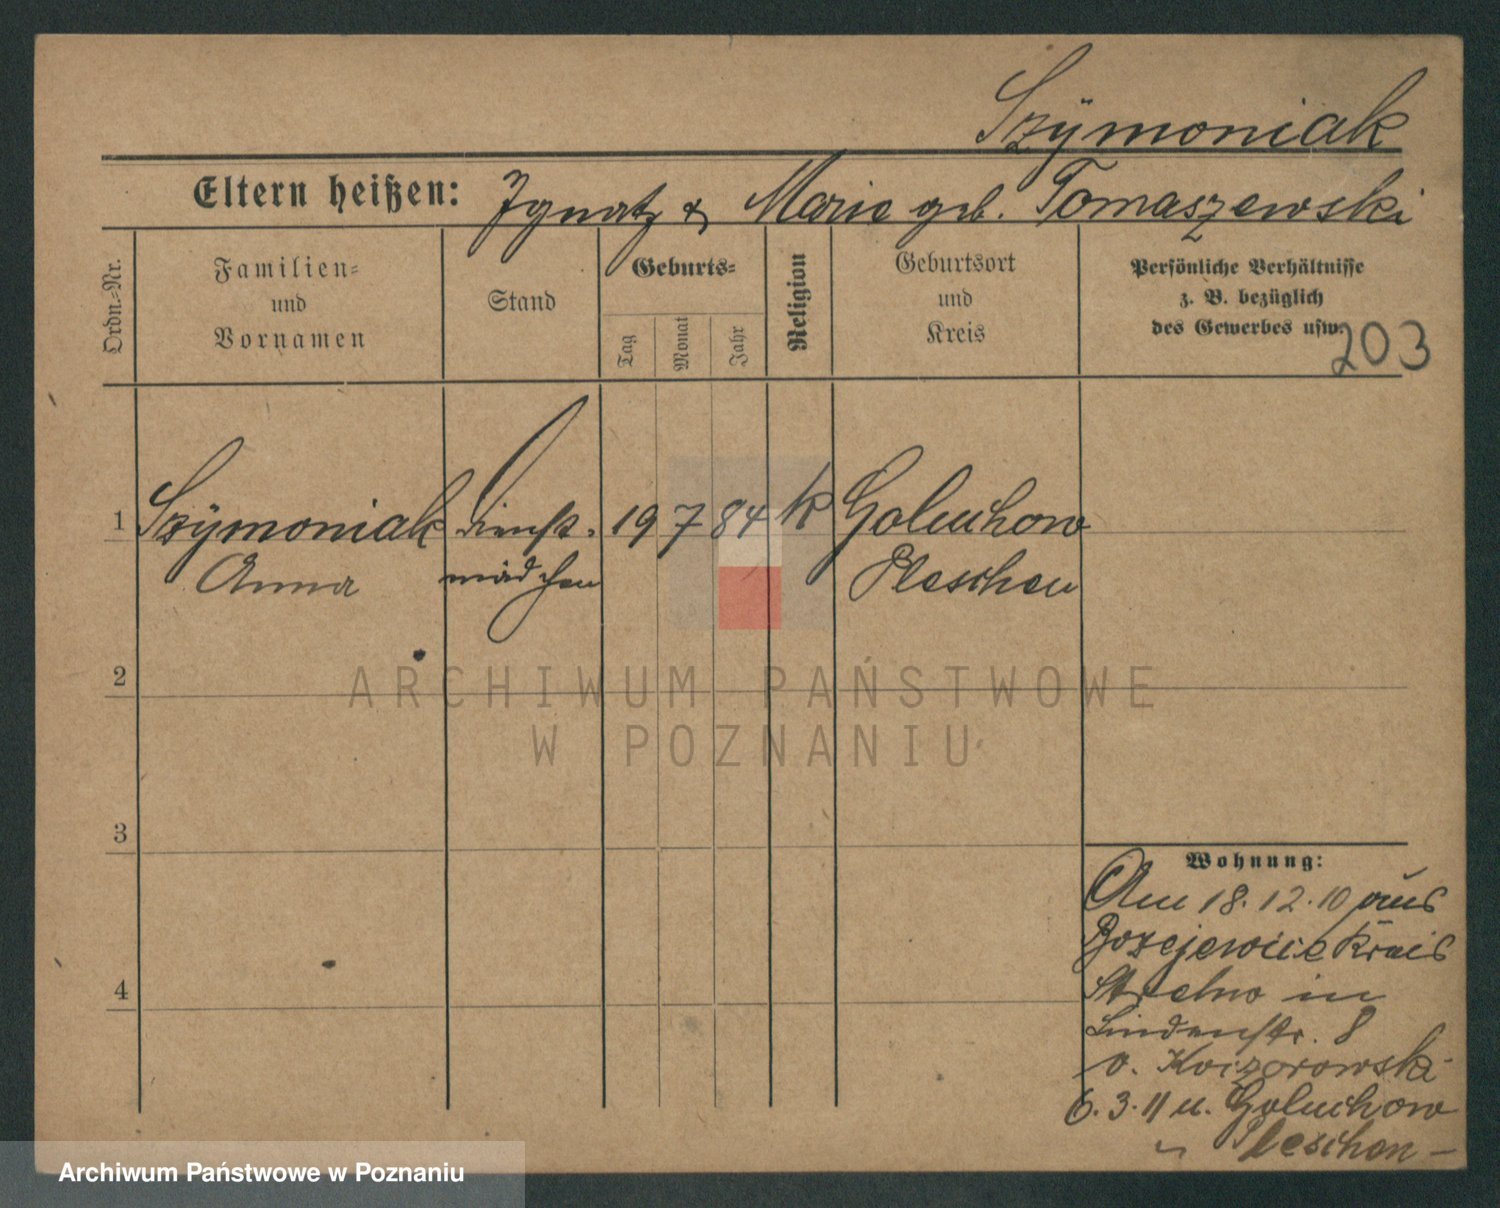 Szÿmoniak
Eltern heißen: Ignatz & Marie geb. Tomaszewski
Ordn.-Nr.
Familien-
und
Vornamen
Stand
Geburts-
Tag
Monat
Jahr
Religion
Geburtsort
und
Kreis
Persönliche Verhältnisse
z. B. bezüglich
des Gewerbes usw.
203
1 Szÿmoniak Dienst- 19 7 84 k Goluchow
Anna mädchen Pleschen
2
ARCHIWUM PAŃSTWOWE
W POZNANIU
3
Wohnung:
Am 18.12.10 aus
Bozejewice Kreis
4
Strelno in
Lindenstr. 8
b.
6.3.11 n. Goluchow
Pleschen
Archiwum Państwowe w Poznaniu